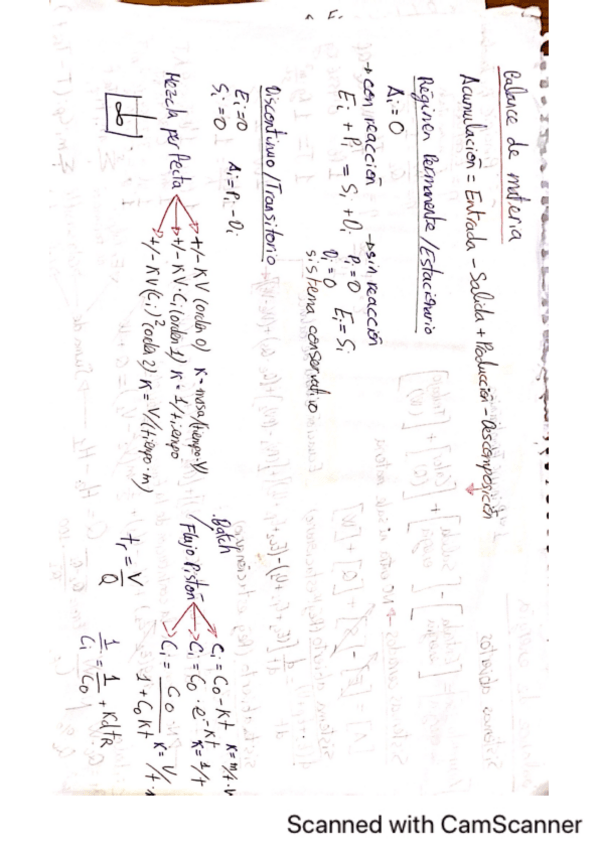 Balance de materia
Acumulación = Entrada - Salida + Producción - Descomposición
Régimen Permanente/Estacionario
Ai=0
→ con reacción → sin reacción
Ei + Pi = Si + Di Pi=0 Ei=Si
Di=0
sistema conservativo
Discontinuo/Transitorio
Ei=0 Ai=Pi-Di
Si=0
Mezcla perfecta
+/- KV (orden 0) K= masa/(tiempo·V)
+/- KV·Ci (orden 1) K= 1/tiempo
+/- KV(Ci)² (orden 2) K= V/(tiempo·m)
Batch
/Flujo Pistón
Ci = C0 - Kt K= m/t·V
Ci = C0 · e^-Kt K= 1/t
Ci = C0 / 1 + C0Kt
tr = V/Q
1/Ci = 1/C0 + KdtR
Scanned with CamScanner